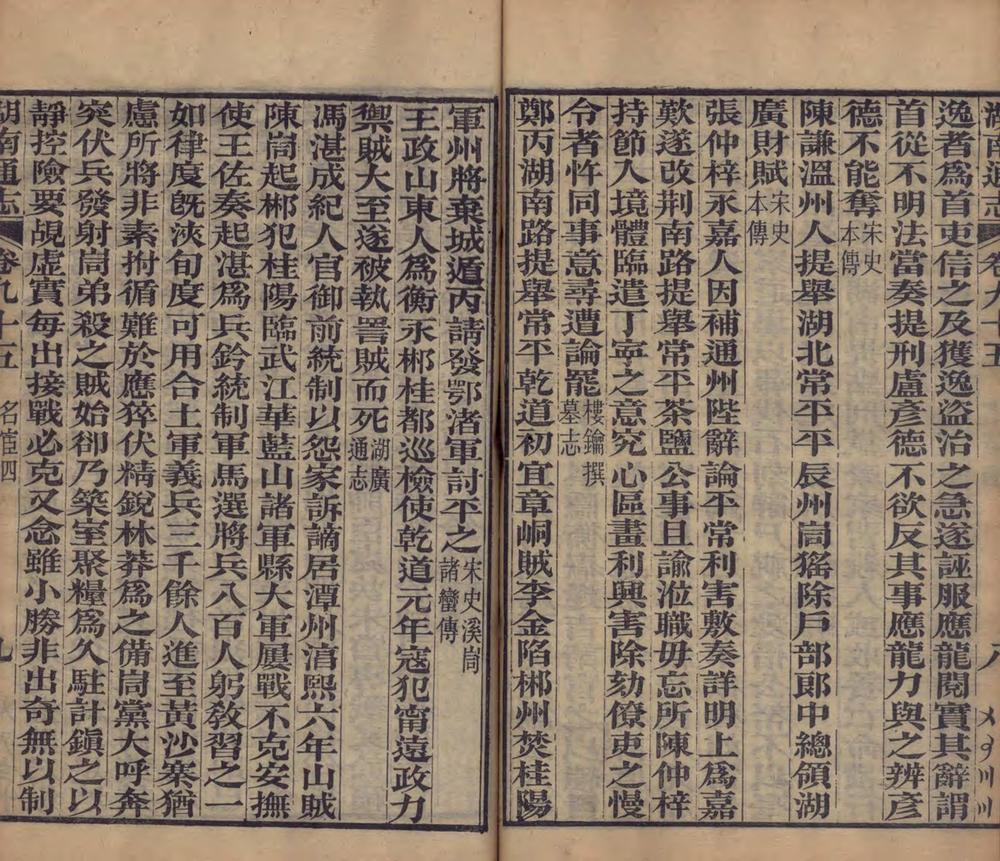 湖南通志 卷九十五 八
逸者為首吏信之及獲逸盜治之急遂誣服應龍閱實其辭謂
首從不明法當奏提刑盧彥德不欲反其事應龍力與之辨彥
德不能奪宋史本傳
陳謙溫州人提舉湖北常平平辰州峝猺除戶部郞中總領湖
廣財賦宋史本傳
張仲梓永嘉人因補通州陛辭論平常利害敷奏詳明上為嘉
歎遂改荆南路提舉常平茶鹽公事且諭涖職毋忘所陳仲梓
持節入境體臨遣丁寧之意究心區畫利興害除劾僚吏之慢
令者忤同事意尋遭論罷樓鑰撰墓志
鄭丙湖南路提舉常平乾道初宜章峒賊李金陷郴州焚桂陽
軍州將棄城遁丙請發鄂渚軍討平之宋史溪峝諸蠻傳
王政山東人為衡永郴桂都巡檢使乾道元年寇犯甯遠政力
禦賊大至遂被執詈賊而死湖廣通志
馮湛成紀人官御前統制以怨家訴謫居潭州淯熙六年山賊
陳峝起郴犯桂陽臨武江華藍山諸軍縣大軍屢戰不克安撫
使王佐奏起湛為兵鈐統制軍馬選將兵八百人躬敎習之一
如律度旣浹旬度可用合土軍義兵三千餘人進至黃沙寨猶
慮所將非素拊循難於應猝伏精銳林莽為之備峝黨大呼奔
突伏兵發射峝弟殺之賊始卻乃築室聚糧為久駐計鎭之以
靜控險要覘虛實每出接戰必克又念雖小勝非出奇無以制
湖南通志 卷九十五 名宦四 九